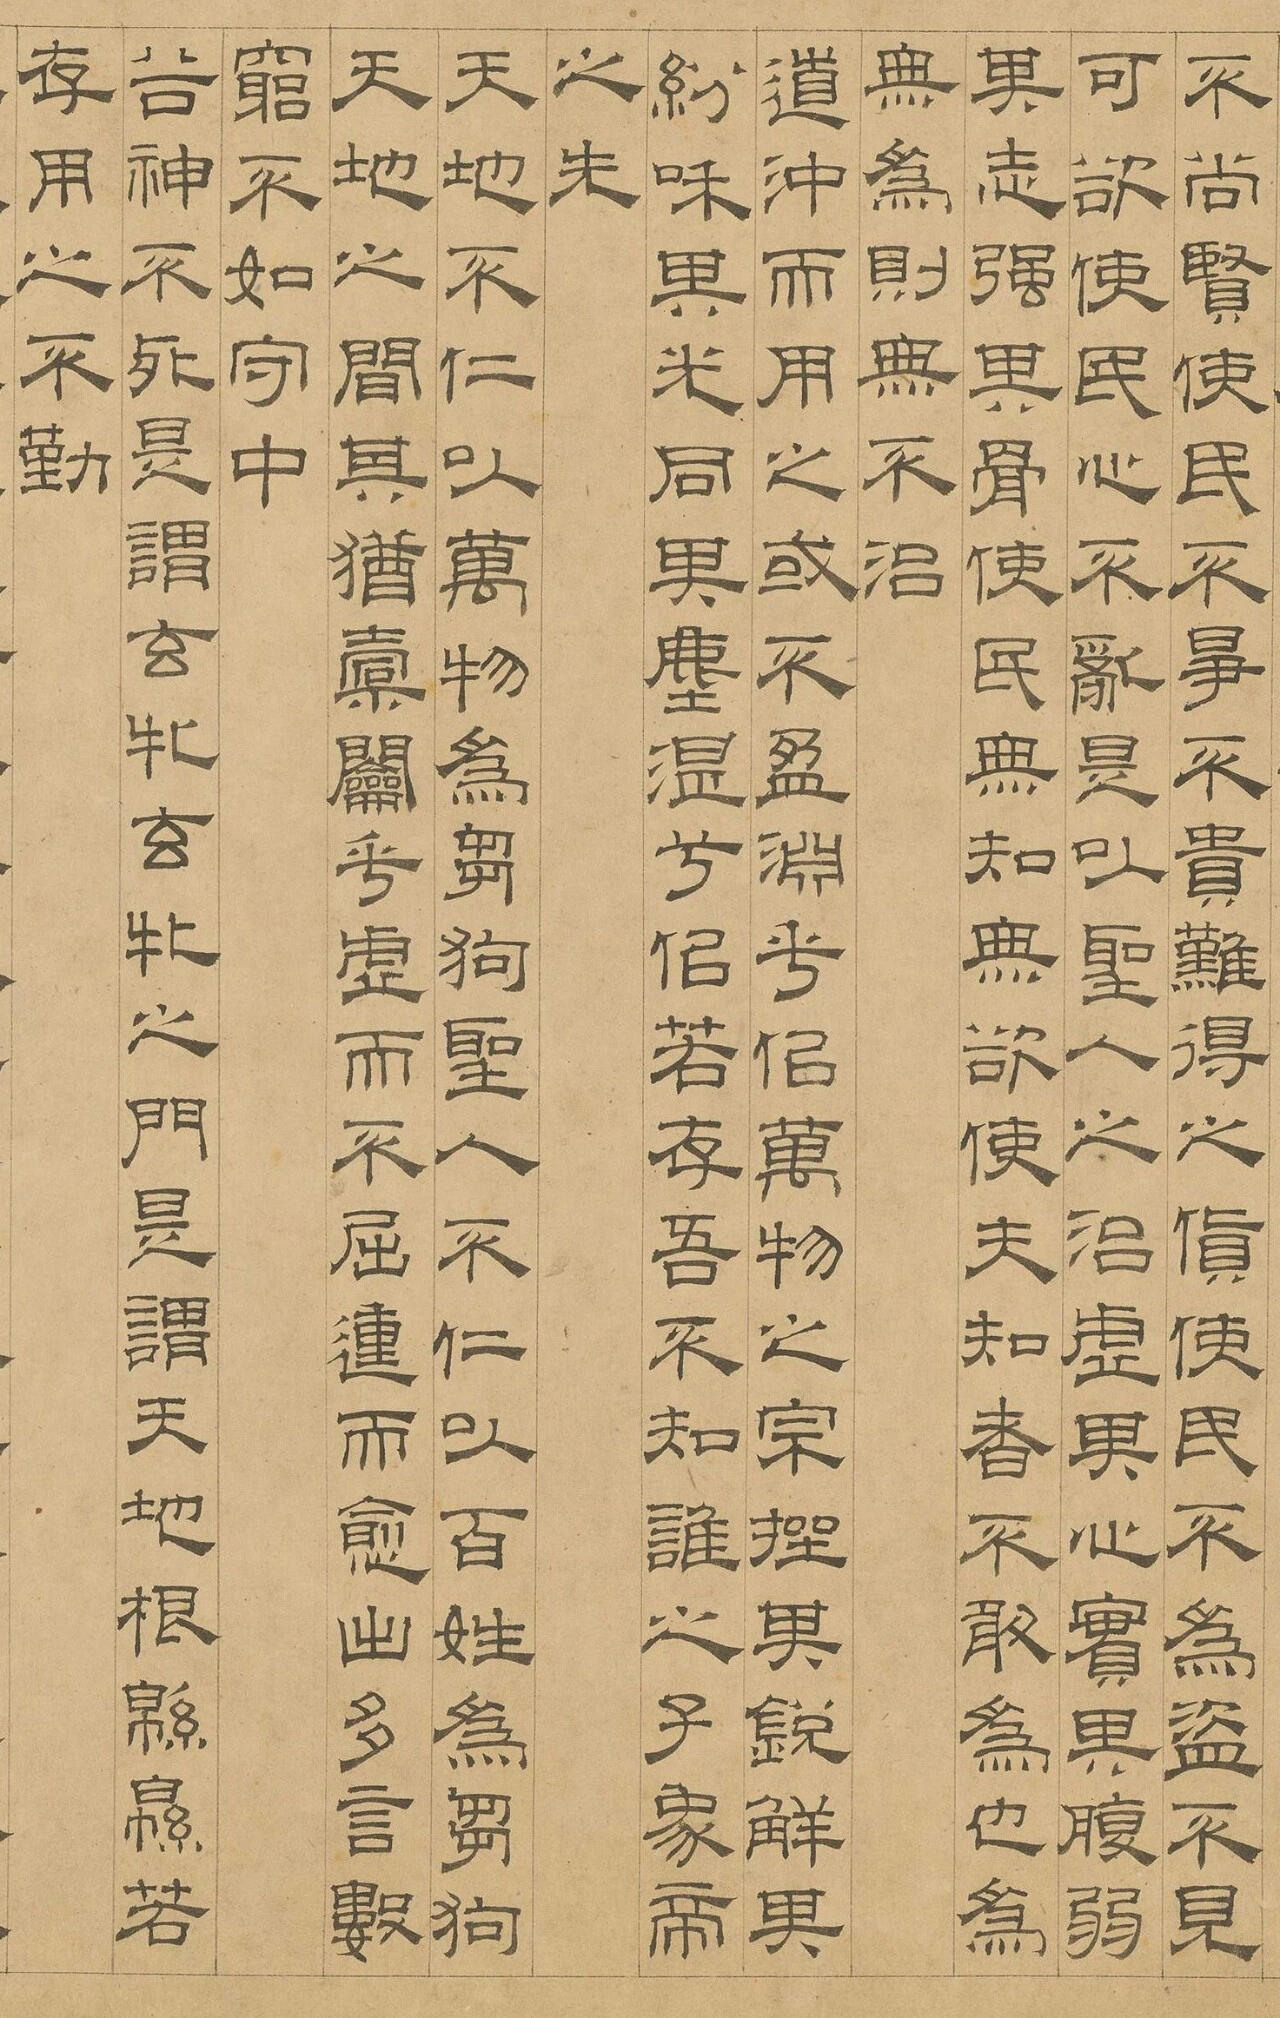 不尚賢使民不爭不貴難得之貨使民不為盜不見
可欲使民心不亂是以聖人之治虛其心實其腹弱
其志强其骨使民無知無欲使夫知者不敢為也為
無為則無不治
道沖而用之或不盈淵乎佀萬物之宗挫其銳解其
紛咊其光同其塵湛兮佀若存吾不知誰之子象帝
之先
天地不仁以萬物為芻狗聖人不仁以百姓為芻狗
天地之間其猶橐籥乎虛而不屈動而愈出多言數
窮不如守中
谷神不死是謂玄牝玄牝之門是謂天地根緜緜若
存用之不勤